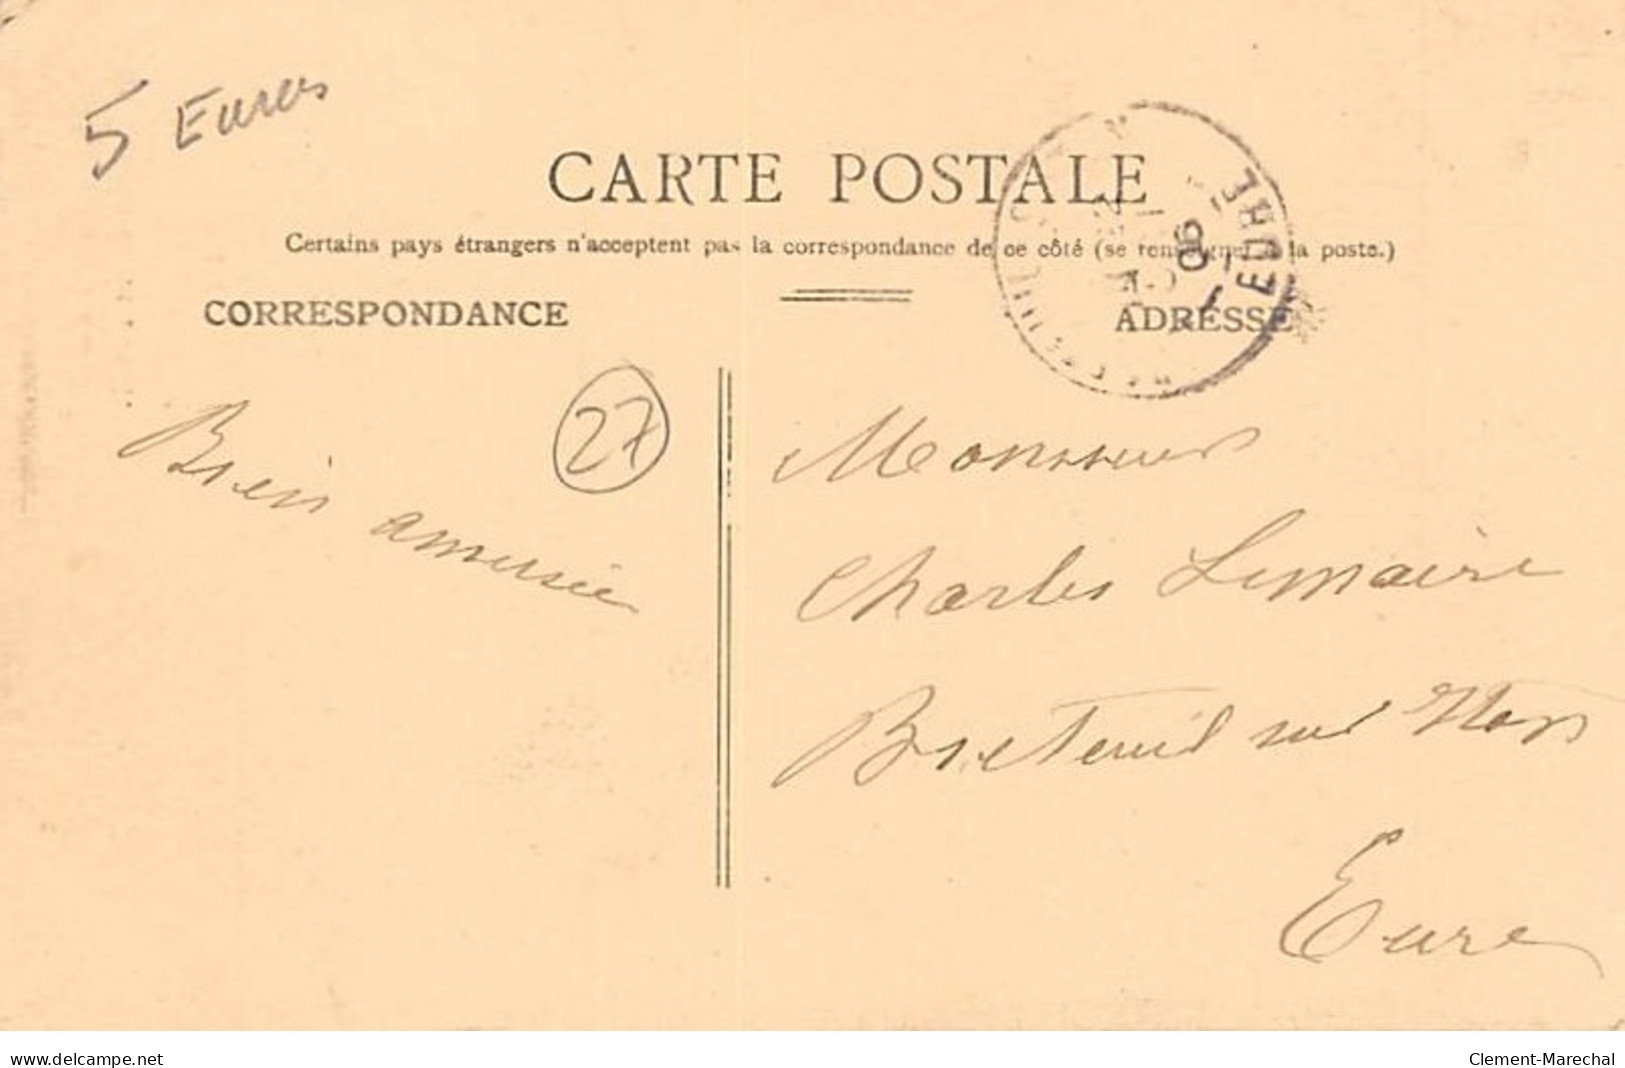 5 Euros
CARTE POSTALE
Certains pays étrangers n'acceptent pas la correspondance de ce côté (se renseigner à la poste.)
CORRESPONDANCE
ADRESSE
06
EURE
27
Bien amusée
Monsieur
Charles Lemaire
Breteuil sur Iton
Eure
www.delcampe.net
Clement-Marechal